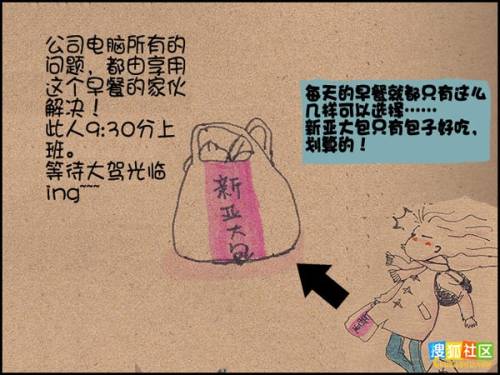 公司电脑所有的
问题，都由享用
这个早餐的家伙
解决！
此人9:30分上
班。
等待大驾光临
ing~~~
每天的早餐就都只有这么
几样可以选择……
新亚大包只有包子好吃，
划算的！
新亚大包
搜狐社区